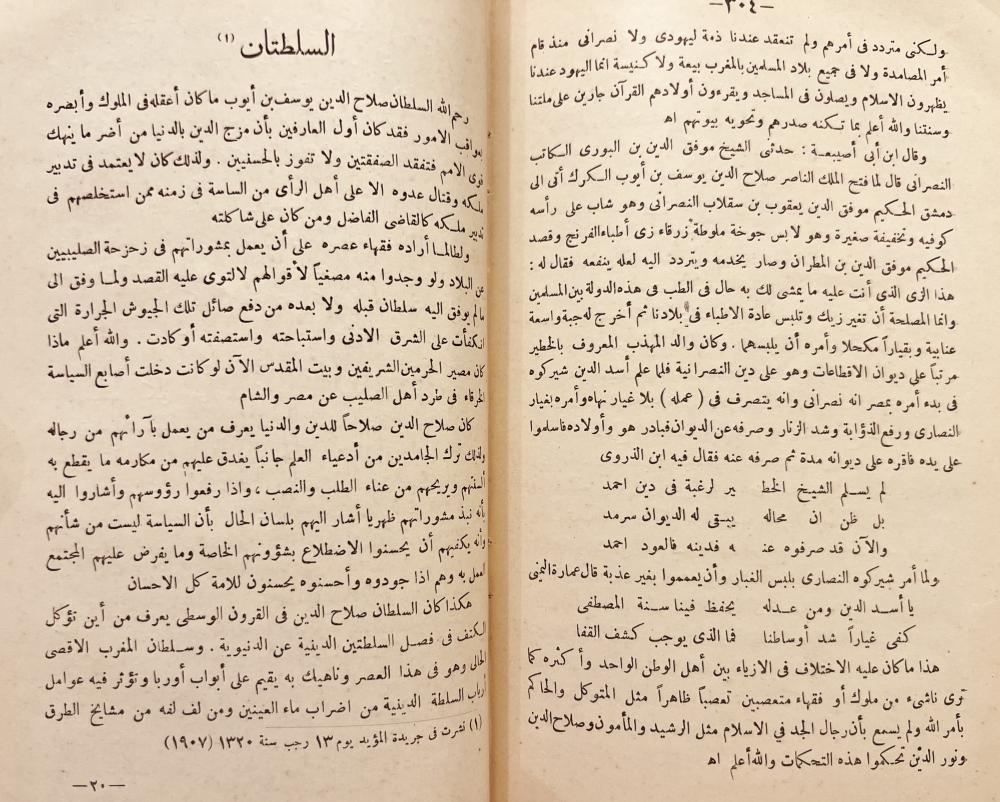 — ٣٠٤ —
ولكنى متردد فى أمرهم ولم تنعقد عندنا ذمة ليهودى ولا نصرانى منذ قام
أمر المصامدة ولا فى جميع بلاد المسلمين بالمغرب بيعة ولا كنيسة انما اليهود عندنا
يظهرون الاسلام ويصلون فى المساجد ويقرءون أولادهم القرآن جارين على ملتنا
وسنتنا والله أعلم بما تكنه صدرهم وتحويه بيوتهم اه
وقال ابن أبى أصيبعة : حدثنى الشيخ موفق الدين بن البورى الكاتب
النصرانى قال لما فتح الملك الناصر صلاح الدين يوسف بن أيوب السكرك أتى الى
دمشق الحكيم موفق الدين يعقوب بن سقلاب النصرانى وهو شاب على رأسه
كوفيه وتخفيفة صغيرة وهو لابس جوخة ملوطة زرقاء زى أطباء الفرنج وقصد
الحكيم موفق الدين بن المطران وصار يخدمه ويتردد اليه لعله ينفعه فقال له :
هذا الزى الذى أنت عليه ما يمشى لك به حال فى الطب فى هذه الدولة بين المسلمين
وانما المصلحة أن تغير زيك وتلبس عادة الاطباء فى بلادنا ثم أخرج له جبة واسعة
عنابية وبقياراً مكحلا وأمره أن يلبسهما . وكان والد المهذب المعروف بالخطير
مرتباً على ديوان الاقطاعات وهو على دين النصرانية فلما علم أسد الدين شيركوه
فى بدء أمره بمصر انه نصرانى وانه يتصرف فى ( عمله ) بلا غيار نهاه وأمره بغيار
النصارى ورفع الذؤابة وشد الزنار وصرفه عن الديوان فبادر هو وأولاده فاسلموا
على يده فاقره على ديوانه مدة ثم صرفه عنه فقال فيه ابن الذروى
لم يسلم الشيخ الخط ير لرغبة فى دين احمد
بل ظن ان محاله يبقى له الديوان سرمد
والآن قد صرفوه عنـ ـه فدينه فالعود احمد
ولما أمر شيركوه النصارى بلبس الغيار وأن يعمموا بغير عذبة قال عمارة اليمنى
يا أسد الدين ومن عدله يحفظ فينا سنة المصطفى
كفى غياراً شد أوساطنا فما الذى يوجب كشف القفا
هذا ما كان عليه الاختلاف فى الازياء بين أهل الوطن الواحد وأكثره كما
ترى ناشىء من ملوك أو فقهاء متعصبين تعصباً ظاهراً مثل المتوكل والحاكم
بأمر الله ولم يسمع بأن رجال الجد فى الاسلام مثل الرشيد والمأمون وصلاح الدين
ونور الدين تحكموا هذه التحكمات والله أعلم اه
السلطتان (١)
رحم الله السلطان صلاح الدين يوسف بن أيوب ما كان أعقله فى الملوك وأبصره
بعواقب الامور فقد كان أول العارفين بأن مزج الدين بالدنيا من أضر ما ينهك
قوى الامم فتفقد الصفقتين ولا تفوز بالحسنيين . ولذلك كان لا يعتمد فى تدبير
ملكه وقتال عدوه الا على أهل الرأى من الساسة فى زمنه ممن استخلصهم فى
تدبير ملكه كالقاضى الفاضل ومن كان على شاكلته
ولطالما أراده فقهاء عصره على أن يعمل بمشوراتهم فى زحزحة الصليبيين
عن البلاد ولو وجدوا منه مصغياً لأقوالهم لالتوى عليه القصد ولما وفق الى
ما لم يوفق اليه سلطان قبله ولا بعده من دفع صائل تلك الجيوش الجرارة التى
انكفأت على الشرق الادنى واستباحته واستصفته أو كادت . والله أعلم ماذا
كان مصير الحرمين الشريفين وبيت المقدس الآن لو كانت دخلت أصابع السياسة
الخرقاء فى طرد أهل الصليب عن مصر والشام
كان صلاح الدين صلاحاً للدين والدنيا يعرف من يعمل بآرائهم من رجاله
ولذلك ترك الجامدين من أدعياء العلم جانباً يغدق عليهم من مكارمه ما يقطع به
ألسنتهم ويريحهم من عناء الطلب والنصب ، واذا رفعوا رؤوسهم وأشاروا اليه
بأنه نبذ مشوراتهم ظهريا أشار اليهم بلسان الحال بأن السياسة ليست من شأنهم
وأنه يكفيهم أن يحسنوا الاضطلاع بشؤونهم الخاصة وما يفرض عليهم المجتمع
العمل به وهم اذا جودوه وأحسنوه يحسنون للامة كل الاحسان
هكذا كان السلطان صلاح الدين فى القرون الوسطى يعرف من أين تؤكل
الكتف فى فصل السلطتين الدينية عن الدنيوية . وسلطان المغرب الاقصى
الحالى وهو فى هذا العصر وناهيك به يقيم على أبواب أوربا وتؤثر فيه عوامل
أرباب السلطة الدينية من اضراب ماء العينين ومن لف لفه من مشايخ الطرق
(١) نشرت فى جريدة المؤيد يوم ١٣ رجب سنة ١٣٢٠ (١٩٠٧)
— ٢٠ —